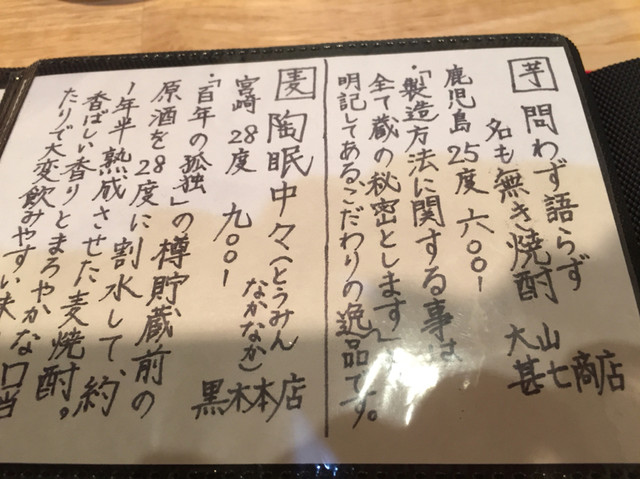 芋 問わず語らず
名も無き焼酎
大山
甚七商店
鹿児島 25度 六〇〇ー
・「製造方法に関する事は
全て蔵の秘密とします」と
明記してある、こだわりの逸品です。
麦 陶眠中々(とうみん
なかなか)
宮崎 28度 九〇〇ー
黒木本店
・「百年の孤独」の樽貯蔵前の
原酒を28度に割水して、約
1年半熟成させた麦焼酎。
香ばしい香りとまろやかな口当
たりで大変飲みやすい